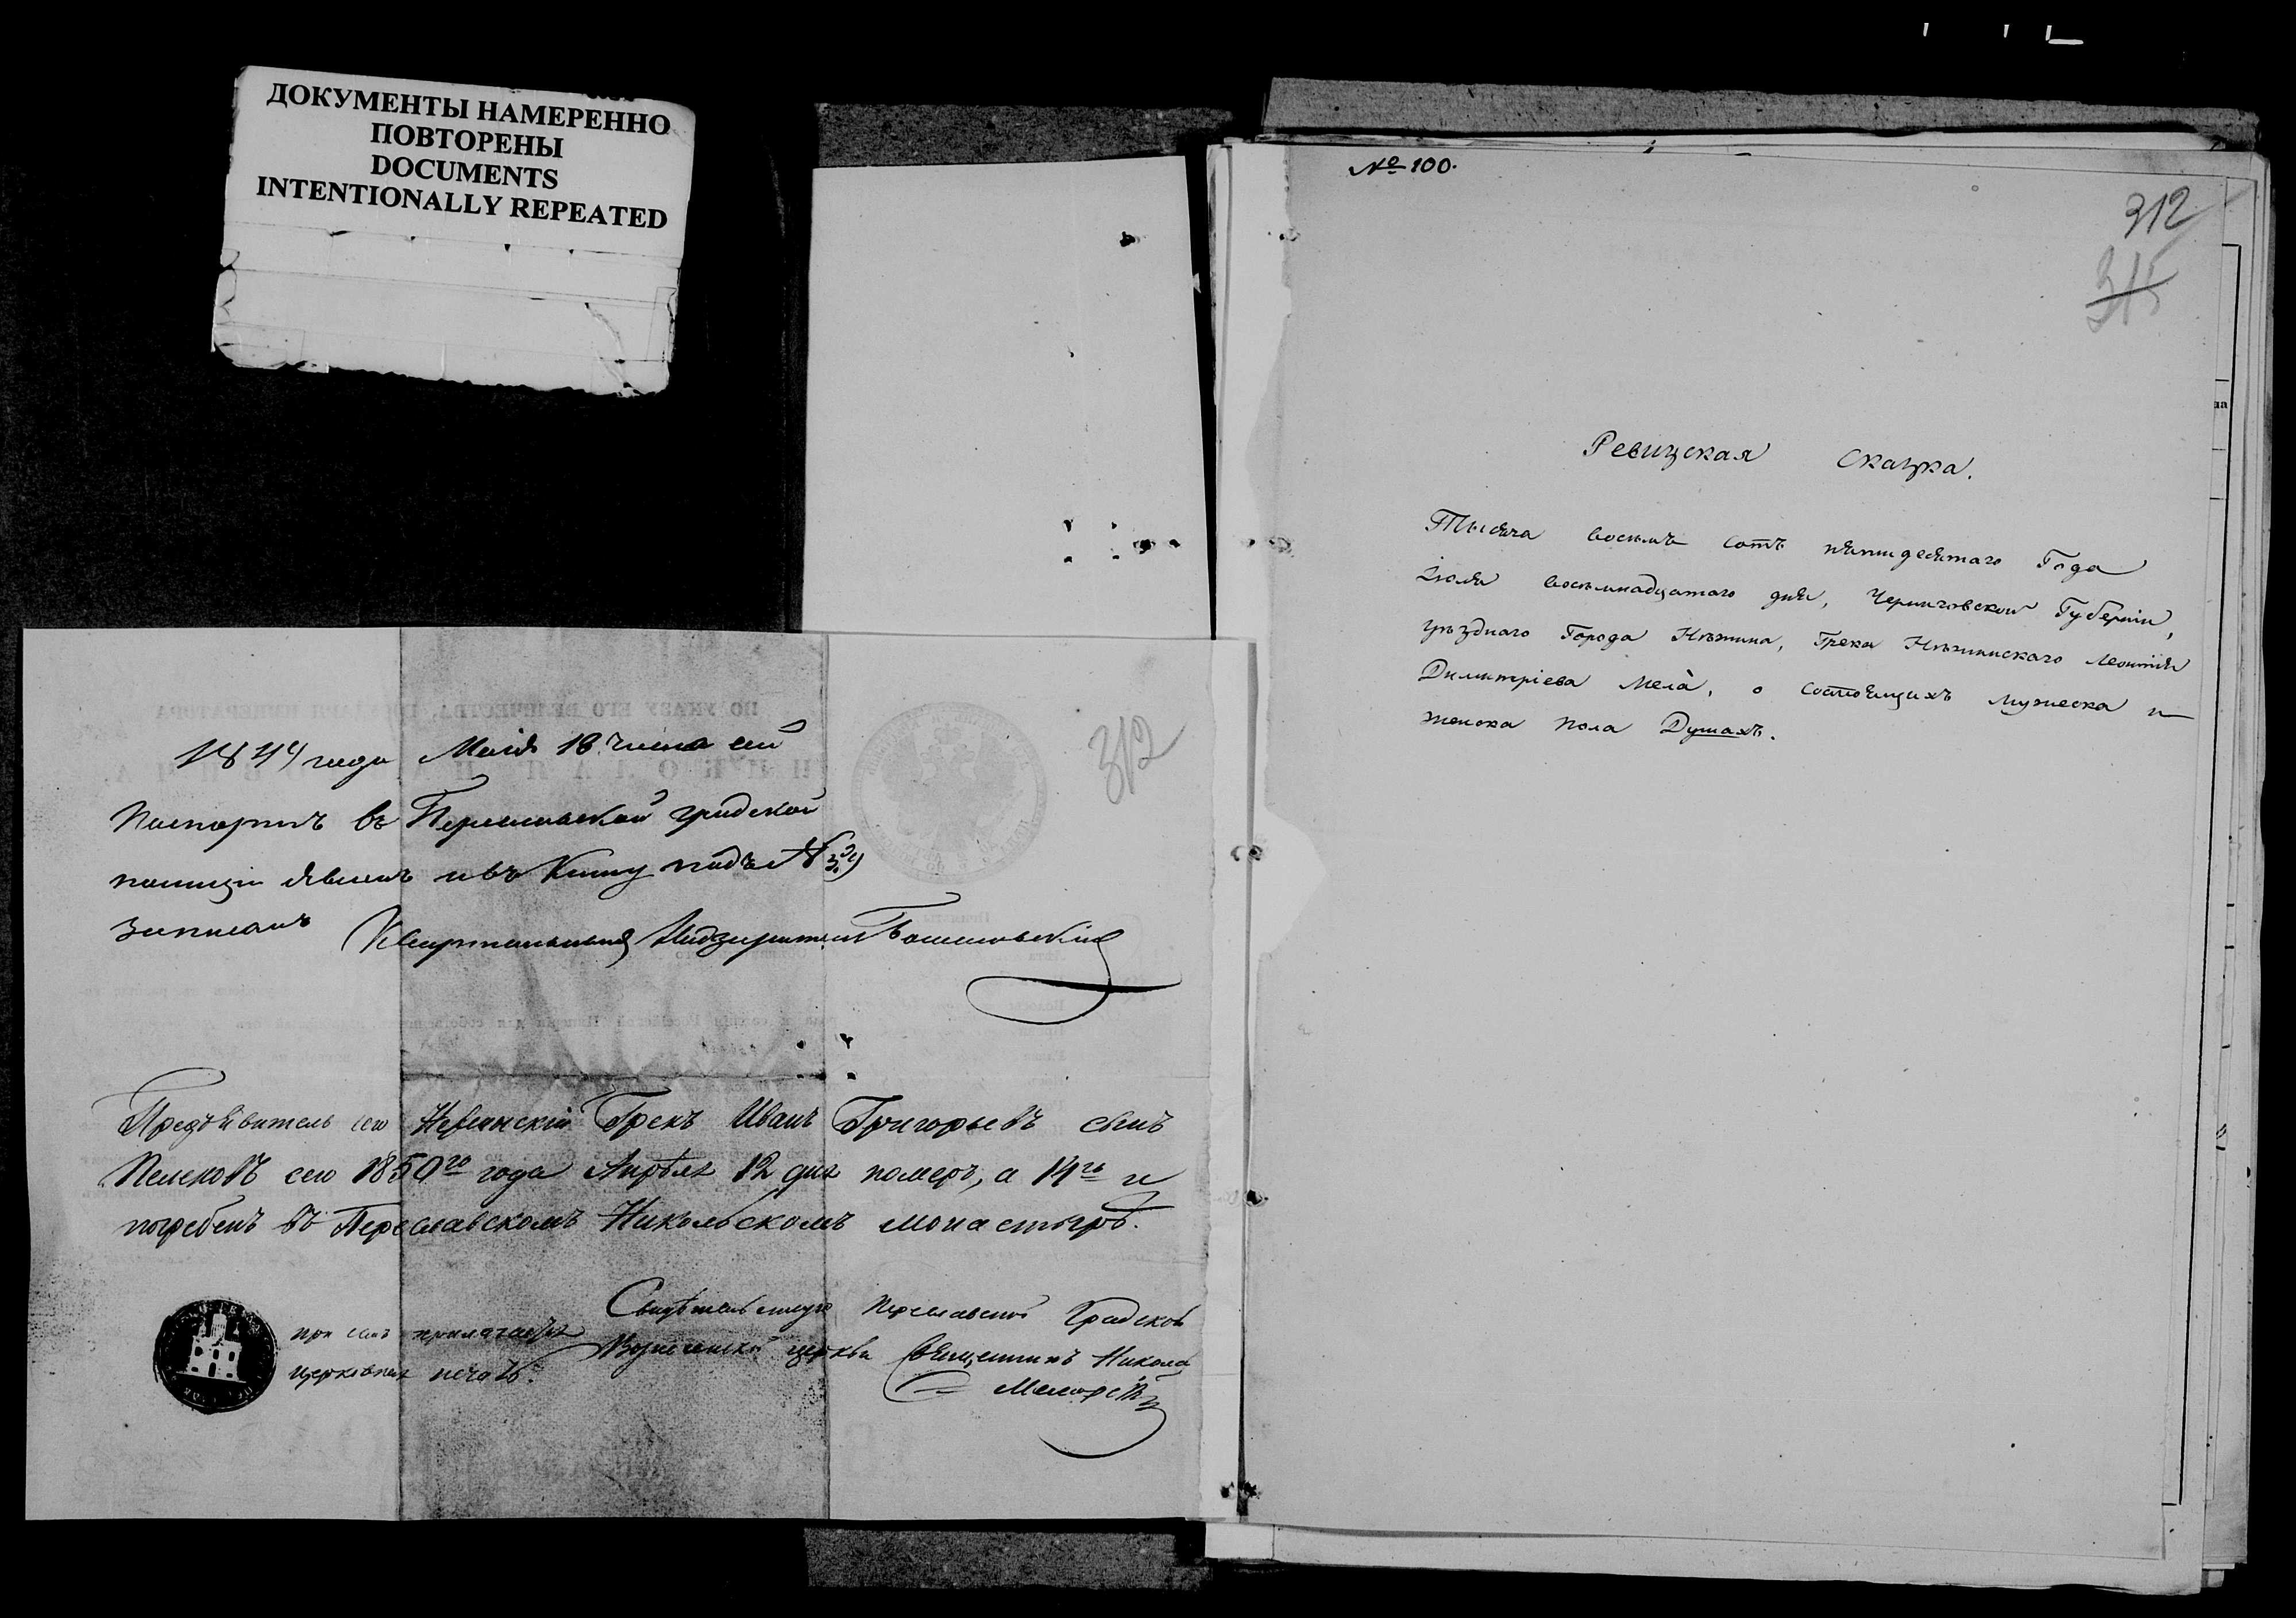 ДОКУМЕНТЫ НАМЕРЕННО
ПОВТОРЕНЫ
DOCUMENTS
INTENTIONALLY REPEATED
312
1844 года Маія 18 числа сей
Паспортъ въ Переяславской градской
полиціи явленъ и въ Книгу подъ №
записанъ Квартальный Надзиратель
Предъявитель сего Нежинскій Грекъ Иванъ Григорьевъ сынъ
сего 1850го года Апрѣля 12 дня померъ, а 14го и
погребенъ въ Переславскомъ Никольскомъ монастырѣ.
Свидѣтельствую Переславской Градской
церкви Священникъ Николай
при семъ прилагается
церковная печать.
№ 100.
312
315
Ревизская сказка.
Тысяча восемь сотъ пятидесятаго Года
Іюля восемнадцатаго дня, Черниговской Губерніи,
уѣзднаго Города Нѣжина, Грека Нѣжинскаго Леонтія
Димитріева Мела, о состоящихъ мужеска и
женска пола Душахъ.